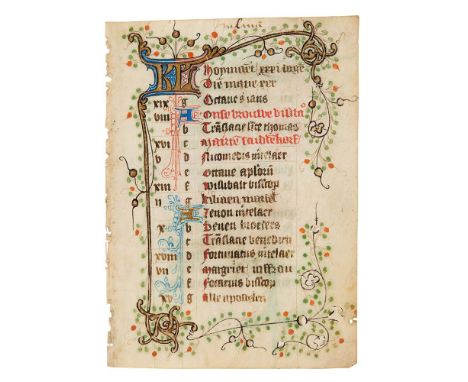 KL Hoymaent xxxi dage
Die mane xxx
xix g Octave s ians
viii A Onse vrouwe visita
b Translacie sinte thomas
xvi c
d Nicomedis mtelaer
e Octave aplorum
xiii f Willibalt biscop
ii g Kiliaen martel
A Zenon mtelaer
x b Seven broeders
c Translacie benedicti
xviii d Fortunatus mtelaer
vii e Margriet ioffrou
f biscop
xv g Alle apostelen